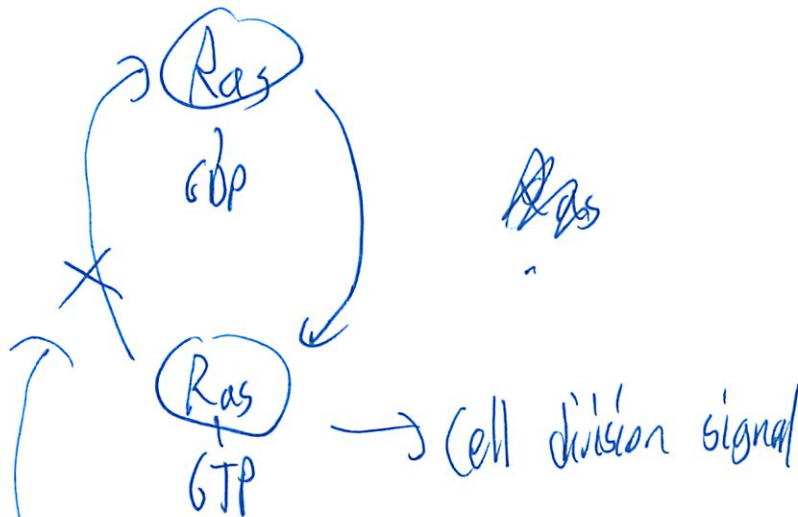 Ras
GDP
Ras
GTP
Cell division signal